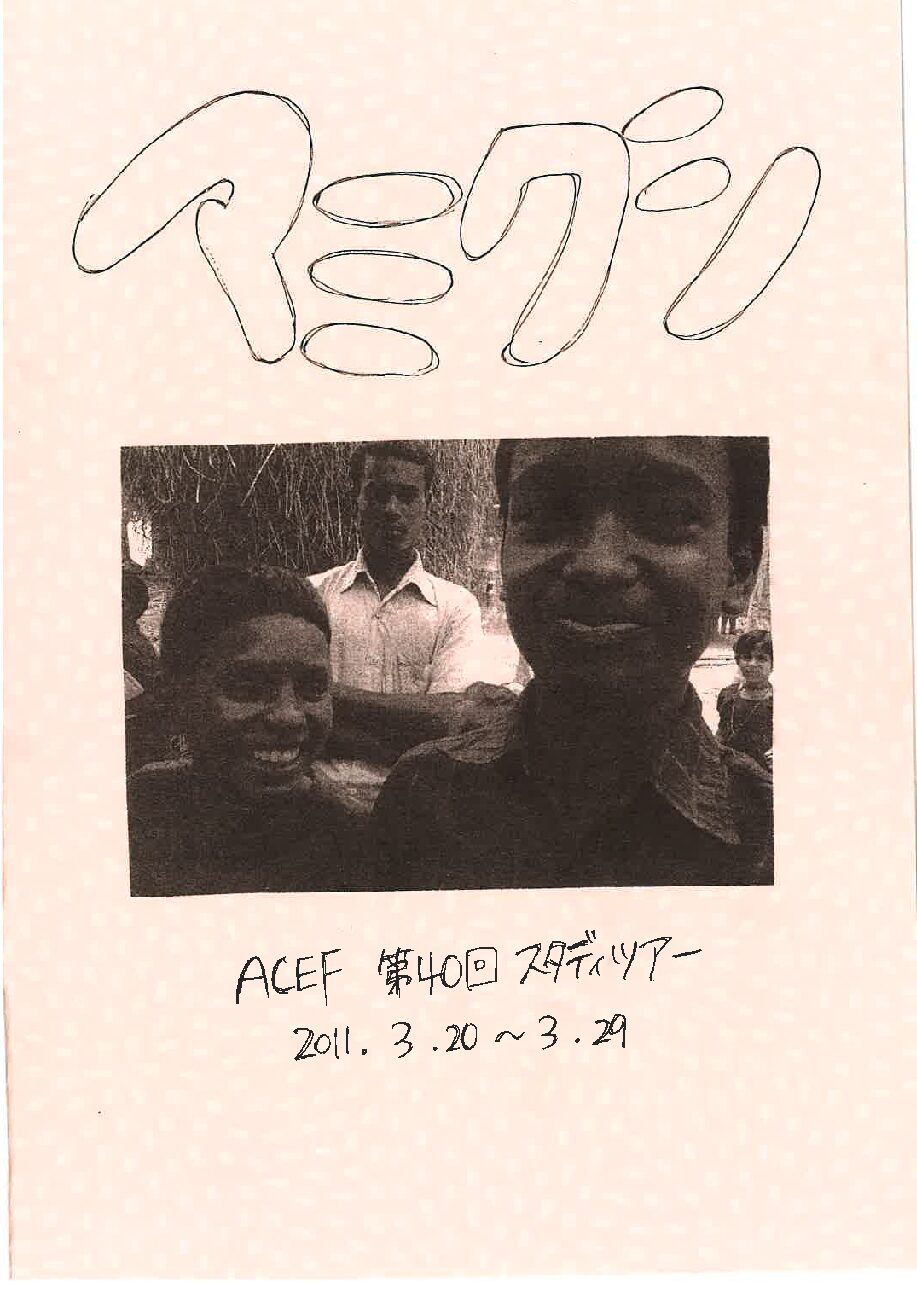 アミクシ
ACEF 第40回 スタディツアー
2011. 3 .20 ～ 3 .29